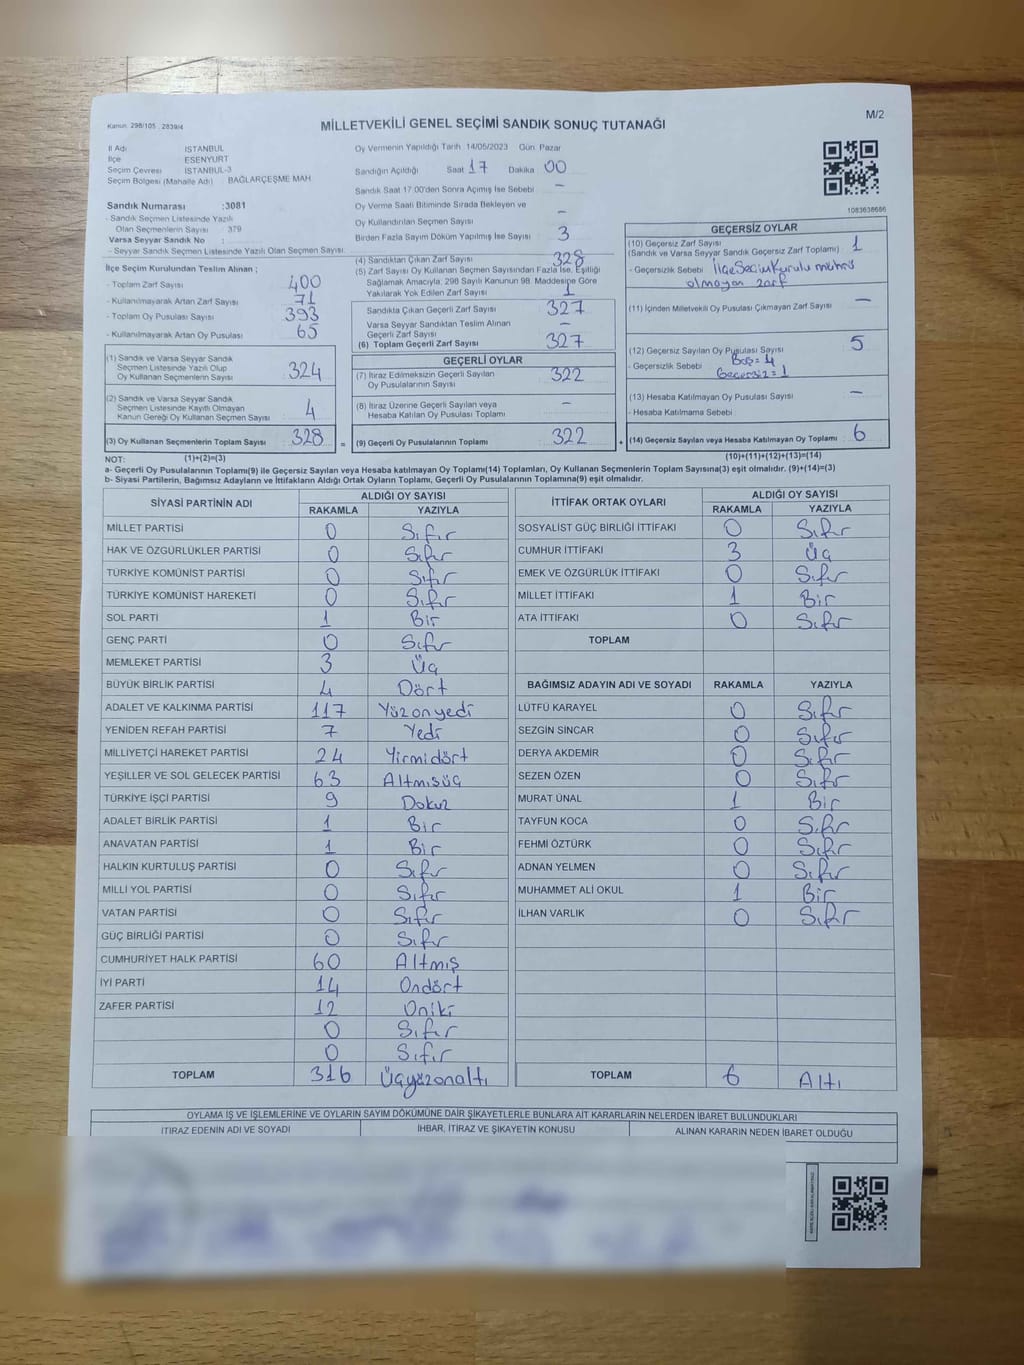 M/2
Kanun: 298/105 , 2839/4
MİLLETVEKİLİ GENEL SEÇİMİ SANDIK SONUÇ TUTANAĞI
İl Adı : İSTANBUL
İlçe : ESENYURT
Seçim Çevresi : İSTANBUL-3
Seçim Bölgesi (Mahalle Adı) : BAĞLARÇEŞME MAH
Sandık Numarası :3081
- Sandık Seçmen Listesinde Yazılı
Olan Seçmenlerin Sayısı : 379
Varsa Seyyar Sandık No :
- Seyyar Sandık Seçmen Listesinde Yazılı Olan Seçmen Sayısı:
İlçe Seçim Kurulundan Teslim Alınan ;
- Toplam Zarf Sayısı : 400
- Kullanılmayarak Artan Zarf Sayısı : 71
- Toplam Oy Pusulası Sayısı : 393
- Kullanılmayarak Artan Oy Pusulası : 65
(1) Sandık ve Varsa Seyyar Sandık
Seçmen Listesinde Yazılı Olup
Oy Kullanan Seçmenlerin Sayısı 324
(2) Sandık ve Varsa Seyyar Sandık
Seçmen Listesinde Kayıtlı Olmayan
Kanun Gereği Oy Kullanan Seçmen Sayısı 4
(3) Oy Kullanan Seçmenlerin Toplam Sayısı 328
Oy Vermenin Yapıldığı Tarih 14/05/2023 Gün Pazar
Sandığın Açıldığı Saat 17 Dakika 00
Sandık Saat 17:00'den Sonra Açılmış İse Sebebi –
Oy Verme Saati Bitiminde Sırada Bekleyen ve
Oy Kullandırılan Seçmen Sayısı –
Birden Fazla Sayım Döküm Yapılmış İse Sayısı 3
(4) Sandıktan Çıkan Zarf Sayısı 328
(5) Zarf Sayısı Oy Kullanan Seçmen Sayısından Fazla İse, Eşitliği
Sağlamak Amacıyla, 298 Sayılı Kanunun 98. Maddesine Göre
Yakılarak Yok Edilen Zarf Sayısı 1
Sandıkta Çıkan Geçerli Zarf Sayısı 327
Varsa Seyyar Sandıktan Teslim Alınan
Geçerli Zarf Sayısı –
(6) Toplam Geçerli Zarf Sayısı 327
GEÇERLİ OYLAR
(7) İtiraz Edilmeksizin Geçerli Sayılan
Oy Pusulalarının Sayısı 322
(8) İtiraz Üzerine Geçerli Sayılan veya
Hesaba Katılan Oy Pusulası Toplamı –
= (9) Geçerli Oy Pusulalarının Toplamı 322
1083638666
GEÇERSİZ OYLAR
(10) Geçersiz Zarf Sayısı
(Sandık ve Varsa Seyyar Sandık Geçersiz Zarf Toplamı) 1
- Geçersizlik Sebebi İlçe Seçim Kurulu mührü
olmayan zarf
(11) İçinden Milletvekili Oy Pusulası Çıkmayan Zarf Sayısı –
(12) Geçersiz Sayılan Oy Pusulası Sayısı 5
- Geçersizlik Sebebi Boş = 4
Geçersiz = 1
(13) Hesaba Katılmayan Oy Pusulası Sayısı –
- Hesaba Katılmama Sebebi
+ (14) Geçersiz Sayılan veya Hesaba Katılmayan Oy Toplamı 6
NOT: (1)+(2)=(3) (10)+(11)+(12)+(13)=(14)
a- Geçerli Oy Pusulalarının Toplamı(9) ile Geçersiz Sayılan veya Hesaba katılmayan Oy Toplamı(14) Toplamları, Oy Kullanan Seçmenlerin Toplam Sayısına(3) eşit olmalıdır. (9)+(14)=(3)
b- Siyasi Partilerin, Bağımsız Adayların ve İttifakların Aldığı Ortak Oyların Toplamı, Geçerli Oy Pusulalarının Toplamına(9) eşit olmalıdır.
SİYASİ PARTİNİN ADI ALDIĞI OY SAYISI
RAKAMLA YAZIYLA
MİLLET PARTİSİ 0 Sıfır
HAK VE ÖZGÜRLÜKLER PARTİSİ 0 Sıfır
TÜRKİYE KOMÜNİST PARTİSİ 0 Sıfır
TÜRKİYE KOMÜNİST HAREKETİ 0 Sıfır
SOL PARTİ 1 Bir
GENÇ PARTİ 0 Sıfır
MEMLEKET PARTİSİ 3 Üç
BÜYÜK BİRLİK PARTİSİ 4 Dört
ADALET VE KALKINMA PARTİSİ 117 Yüzonyedi
YENİDEN REFAH PARTİSİ 7 Yedi
MİLLİYETÇİ HAREKET PARTİSİ 24 Yirmidört
YEŞİLLER VE SOL GELECEK PARTİSİ 63 Altmışüç
TÜRKİYE İŞÇİ PARTİSİ 9 Dokuz
ADALET BİRLİK PARTİSİ 1 Bir
ANAVATAN PARTİSİ 1 Bir
HALKIN KURTULUŞ PARTİSİ 0 Sıfır
MİLLİ YOL PARTİSİ 0 Sıfır
VATAN PARTİSİ 0 Sıfır
GÜÇ BİRLİĞİ PARTİSİ 0 Sıfır
CUMHURİYET HALK PARTİSİ 60 Altmış
İYİ PARTİ 14 Ondört
ZAFER PARTİSİ 12 Oniki
0 Sıfır
0 Sıfır
TOPLAM 316 Üçyüzonaltı
İTTİFAK ORTAK OYLARI ALDIĞI OY SAYISI
RAKAMLA YAZIYLA
SOSYALİST GÜÇ BİRLİĞİ İTTİFAKI 0 Sıfır
CUMHUR İTTİFAKI 3 Üç
EMEK VE ÖZGÜRLÜK İTTİFAKI 0 Sıfır
MİLLET İTTİFAKI 1 Bir
ATA İTTİFAKI 0 Sıfır
TOPLAM
BAĞIMSIZ ADAYIN ADI VE SOYADI RAKAMLA YAZIYLA
LÜTFÜ KARAYEL 0 Sıfır
SEZGİN SİNCAR 0 Sıfır
DERYA AKDEMİR 0 Sıfır
SEZEN ÖZEN 0 Sıfır
MURAT ÜNAL 1 Bir
TAYFUN KOCA 0 Sıfır
FEHMİ ÖZTÜRK 0 Sıfır
ADNAN YELMEN 0 Sıfır
MUHAMMET ALİ OKUL 1 Bir
İLHAN VARLIK 0 Sıfır
TOPLAM 6 Altı
OYLAMA İŞ VE İŞLEMLERİNE VE OYLARIN SAYIM DÖKÜMÜNE DAİR ŞİKAYETLERLE BUNLARA AİT KARARLARIN NELERDEN İBARET BULUNDUKLARI
İTİRAZ EDENİN ADI VE SOYADI İHBAR, İTİRAZ VE ŞİKAYETİN KONUSU ALINAN KARARIN NEDEN İBARET OLDUĞU